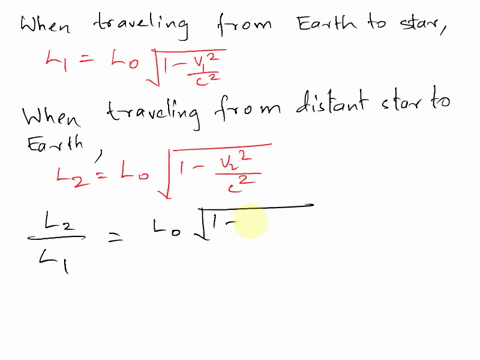 When traveling from Earth to star,
L₁ = L₀ √(1 - v₁²/c²)
When traveling from distant star to
Earth,
L₂ = L₀ √(1 - v₂²/c²)
L₂/L₁ = L₀ √(1 -